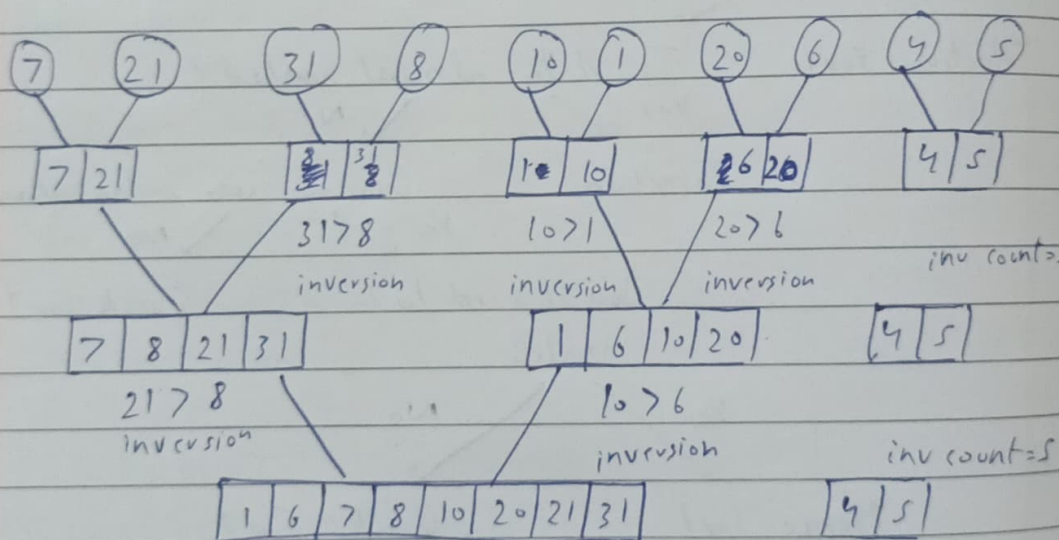 7 21 31 8 10 1 20 6 4 5
7 21 8 31 1 10 6 20 4 5
31>8 10>1 20>6
inversion inversion inversion inv count=
7 8 21 31 1 6 10 20 4 5
21 > 8 10 > 6
inversion inversion inv count=5
1 6 7 8 10 20 21 31 4 5